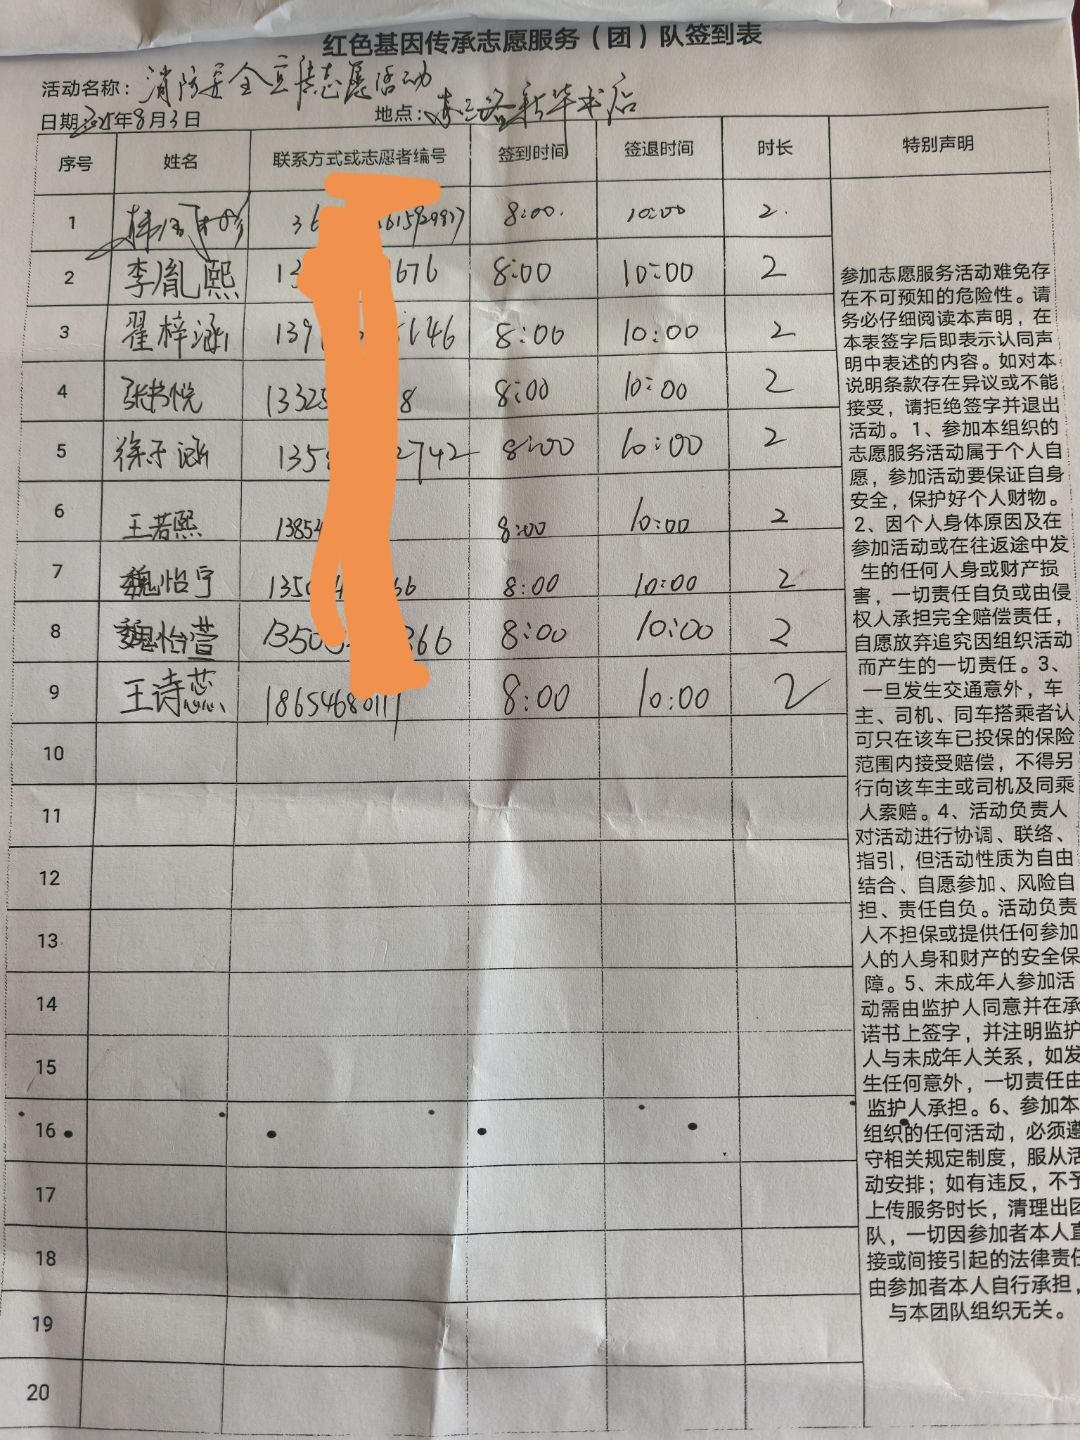 红色基因传承志愿服务（团）队签到表
活动名称：消防安全宣传志愿活动
日期：2025年8月3日 地点：东三路新华书店
序号 姓名 联系方式或志愿者编号 签到时间 签退时间 时长 特别声明
1 8:00 10:00 2
2 李胤熙 13 676 8:00 10:00 2
3 翟梓涵 139 146 8:00 10:00 2
4 张书悦 1332 8 8:00 10:00 2
5 徐子涵 135 2742 8:00 10:00 2
6 王若熙 1385 8:00 10:00 2
7 魏怡宁 1350 66 8:00 10:00 2
8 魏怡萱 1350 366 8:00 10:00 2
9 王诗蕊 8:00 10:00 2
10
11
12
13
14
15
16
17
18
19
20
参加志愿服务活动难免存
在不可预知的危险性。请
务必仔细阅读本声明，在
本表签字后即表示认同声
明中表述的内容。如对本
说明条款存在异议或不能
接受，请拒绝签字并退出
活动。1、参加本组织的
志愿服务活动属于个人自
愿，参加活动要保证自身
安全，保护好个人财物。
2、因个人身体原因及在
参加活动或在往返途中发
生的任何人身或财产损
害，一切责任自负或由侵
权人承担完全赔偿责任，
自愿放弃追究因组织活动
而产生的一切责任。3、
一旦发生交通意外，车
主、司机、同车搭乘者认
可只在该车已投保的保险
范围内接受赔偿，不得另
行向该车主或司机及同乘
人索赔。4、活动负责人
对活动进行协调、联络、
指引，但活动性质为自由
结合、自愿参加、风险自
担、责任自负。活动负责
人不担保或提供任何参加
人的人身和财产的安全保
障。5、未成年人参加活
动需由监护人同意并在承
诺书上签字，并注明监护
人与未成年人关系，如发
生任何意外，一切责任由
监护人承担。6、参加本
组织的任何活动，必须遵
守相关规定制度，服从活
动安排；如有违反，不予
上传服务时长，清理出团
队，一切因参加者本人直
接或间接引起的法律责任
由参加者本人自行承担，
与本团队组织无关。